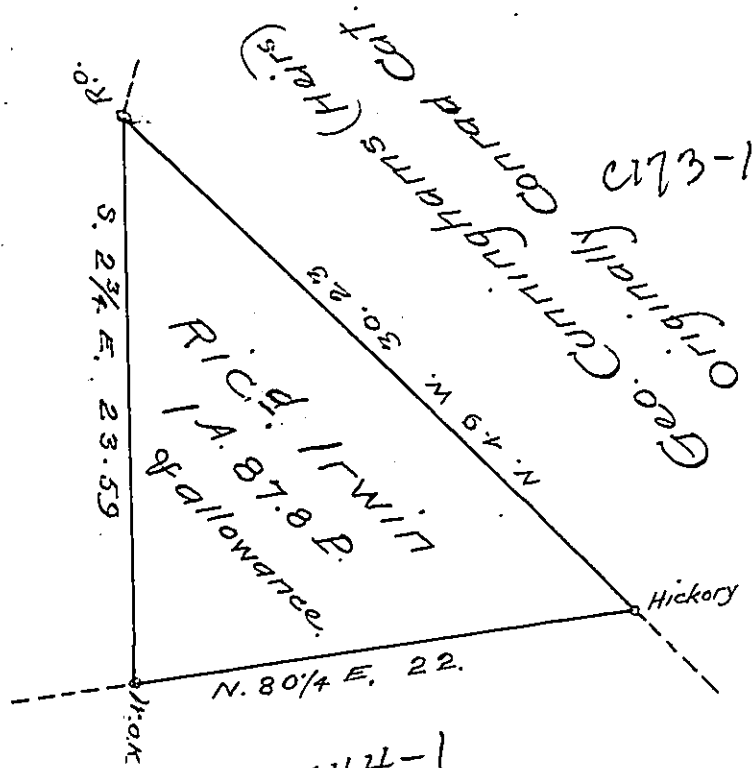 C173-1
Originally Conrad Cat
Geo. Cunninghams (Heirs)
R.O.
N. 49 W. 30.23
S. 2¾ E. 23.59
Ric.d Irwin
1 A. 87.8 P.
& allowance.
Hickory
N. 80¼ E. 22.
W.O.K